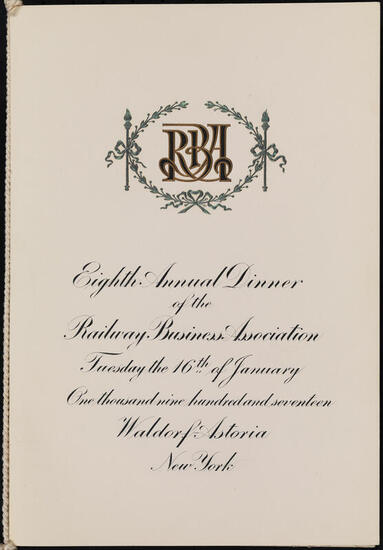 RBA
Eighth Annual Dinner
of the
Railway Business Association
Tuesday the 16th of January
One thousand nine hundred and seventeen
Waldorf-Astoria
New York